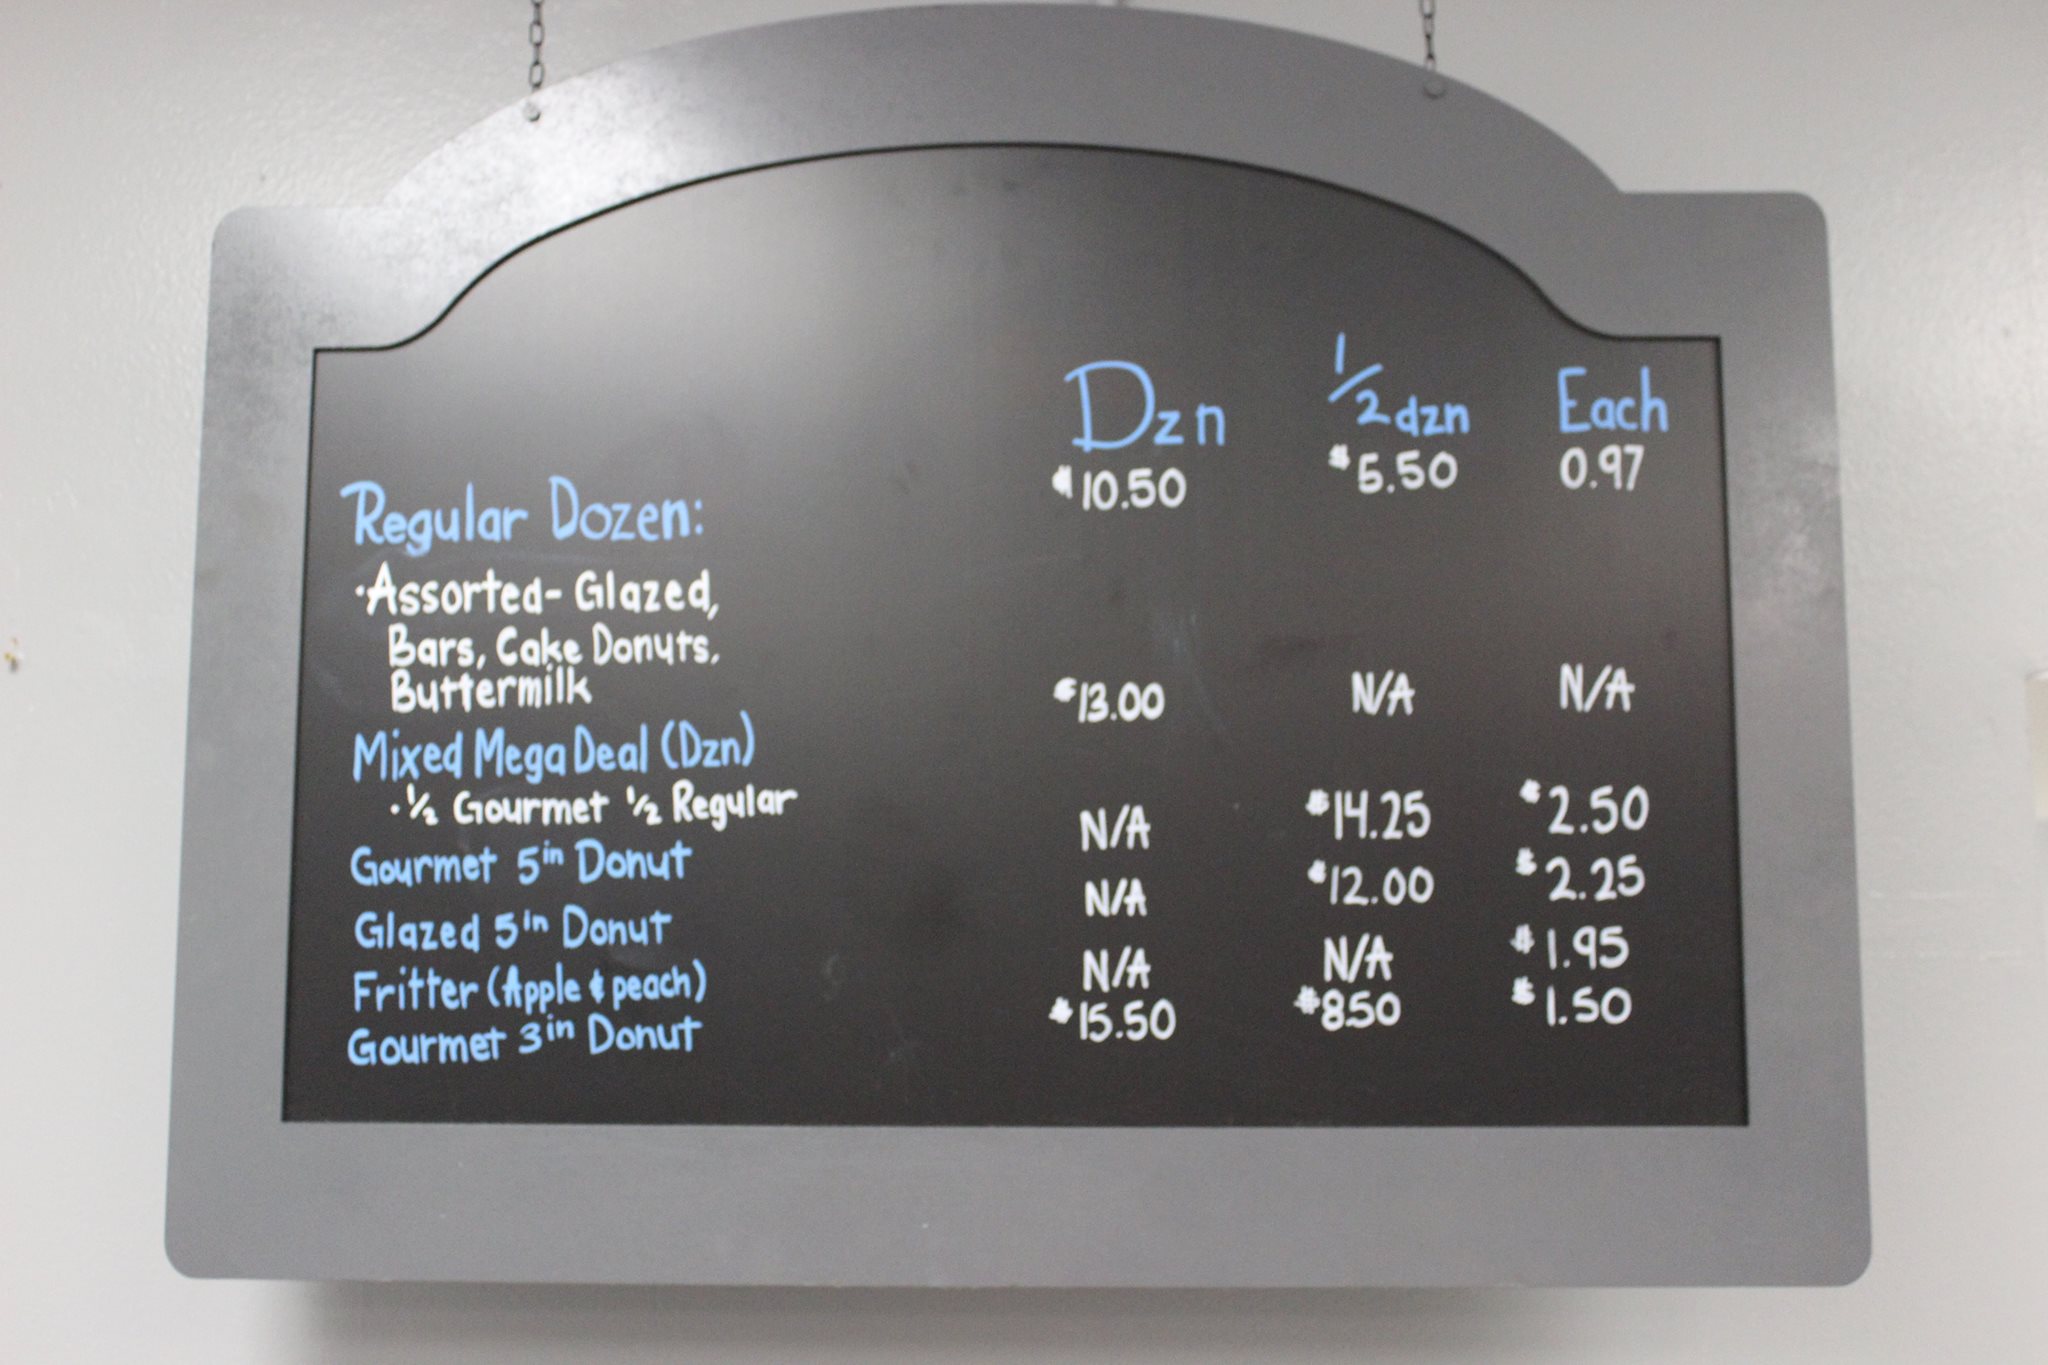 Dzn 1/2 dzn Each
Regular Dozen: $10.50 $5.50 0.97
·Assorted- Glazed,
Bars, Cake Donuts,
Buttermilk
Mixed Mega Deal (Dzn) $13.00 N/A N/A
·1/2 Gourmet 1/2 Regular
Gourmet 5in Donut N/A $14.25 $2.50
Glazed 5in Donut N/A $12.00 $2.25
Fritter (Apple & peach) N/A N/A $1.95
Gourmet 3in Donut $15.50 $8.50 $1.50